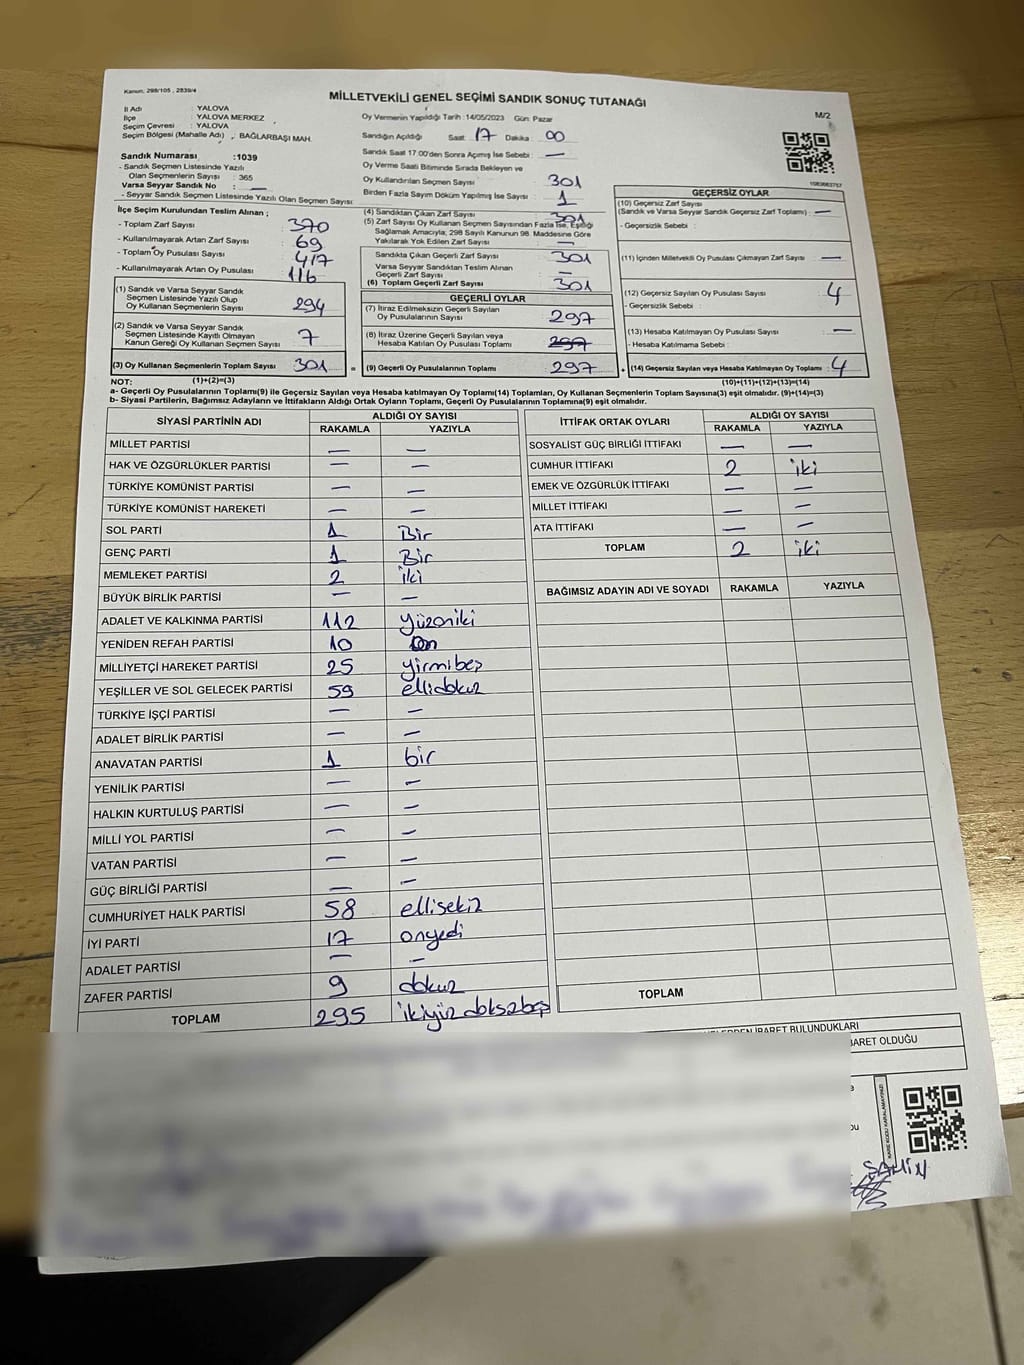 Kanun: 298/105 , 2839/4
MİLLETVEKİLİ GENEL SEÇİMİ SANDIK SONUÇ TUTANAĞI
M/2
İl Adı : YALOVA
İlçe : YALOVA MERKEZ
Seçim Çevresi : YALOVA
Seçim Bölgesi (Mahalle Adı) : BAĞLARBAŞI MAH.
Sandık Numarası :1039
- Sandık Seçmen Listesinde Yazılı
Olan Seçmenlerin Sayısı : 365
Varsa Seyyar Sandık No : —
- Seyyar Sandık Seçmen Listesinde Yazılı Olan Seçmen Sayısı
İlçe Seçim Kurulundan Teslim Alınan ;
- Toplam Zarf Sayısı : 370
- Kullanılmayarak Artan Zarf Sayısı : 69
- Toplam Oy Pusulası Sayısı : 417
- Kullanılmayarak Artan Oy Pusulası : 116
(1) Sandık ve Varsa Seyyar Sandık
Seçmen Listesinde Yazılı Olup
Oy Kullanan Seçmenlerin Sayısı 294
(2) Sandık ve Varsa Seyyar Sandık
Seçmen Listesinde Kayıtlı Olmayan
Kanun Gereği Oy Kullanan Seçmen Sayısı 7
(3) Oy Kullanan Seçmenlerin Toplam Sayısı 301
(1)+(2)=(3)
Oy Vermenin Yapıldığı Tarih :14/05/2023 Gün: Pazar
Sandığın Açıldığı Saat: 17 Dakika : 00
Sandık Saat 17:00'den Sonra Açımış İse Sebebi : —
Oy Verme Saati Bitiminde Sırada Bekleyen ve
Oy Kullandırılan Seçmen Sayısı : 301
Birden Fazla Sayım Döküm Yapılmış İse Sayısı : 1
(4) Sandıktan Çıkan Zarf Sayısı : 301
(5) Zarf Sayısı Oy Kullanan Seçmen Sayısından Fazla İse, Eşitliği
Sağlamak Amacıyla; 298 Sayılı Kanunun 98. Maddesine Göre
Yakılarak Yok Edilen Zarf Sayısı : —
Sandıkta Çıkan Geçerli Zarf Sayısı : 301
Varsa Seyyar Sandıktan Teslim Alınan
Geçerli Zarf Sayısı : —
(6) Toplam Geçerli Zarf Sayısı : 301
GEÇERLİ OYLAR
(7) İtiraz Edilmeksizin Geçerli Sayılan
Oy Pusulalarının Sayısı : 297
(8) İtiraz Üzerine Geçerli Sayılan veya
Hesaba Katılan Oy Pusulası Toplamı : 297
= (9) Geçerli Oy Pusulalarının Toplamı : 297
1083683757
GEÇERSİZ OYLAR
(10) Geçersiz Zarf Sayısı
(Sandık ve Varsa Seyyar Sandık Geçersiz Zarf Toplamı) : —
- Geçersizlik Sebebi :
(11) İçinden Milletvekili Oy Pusulası Çıkmayan Zarf Sayısı : —
(12) Geçersiz Sayılan Oy Pusulası Sayısı : 4
- Geçersizlik Sebebi
(13) Hesaba Katılmayan Oy Pusulası Sayısı : —
- Hesaba Katılmama Sebebi :
+ (14) Geçersiz Sayılan veya Hesaba Katılmayan Oy Toplamı : 4
(10)+(11)+(12)+(13)=(14)
NOT:
a- Geçerli Oy Pusulalarının Toplamı(9) ile Geçersiz Sayılan veya Hesaba katılmayan Oy Toplamı(14) Toplamları, Oy Kullanan Seçmenlerin Toplam Sayısına(3) eşit olmalıdır. (9)+(14)=(3)
b- Siyasi Partilerin, Bağımsız Adayların ve İttifakların Aldığı Ortak Oyların Toplamı, Geçerli Oy Pusulalarının Toplamına(9) eşit olmalıdır.
SİYASİ PARTİNİN ADI ALDIĞI OY SAYISI
RAKAMLA YAZIYLA
MİLLET PARTİSİ — —
HAK VE ÖZGÜRLÜKLER PARTİSİ — —
TÜRKİYE KOMÜNİST PARTİSİ — —
TÜRKİYE KOMÜNİST HAREKETİ — —
SOL PARTİ 1 Bir
GENÇ PARTİ 1 Bir
MEMLEKET PARTİSİ 2 iki
BÜYÜK BİRLİK PARTİSİ — —
ADALET VE KALKINMA PARTİSİ 112 yüzoniki
YENİDEN REFAH PARTİSİ 10 on
MİLLİYETÇİ HAREKET PARTİSİ 25 yirmibeş
YEŞİLLER VE SOL GELECEK PARTİSİ 59 ellidokuz
TÜRKİYE İŞÇİ PARTİSİ — —
ADALET BİRLİK PARTİSİ — —
ANAVATAN PARTİSİ 1 bir
YENİLİK PARTİSİ — —
HALKIN KURTULUŞ PARTİSİ — —
MİLLİ YOL PARTİSİ — —
VATAN PARTİSİ — —
GÜÇ BİRLİĞİ PARTİSİ — —
CUMHURİYET HALK PARTİSİ 58 ellisekiz
İYİ PARTİ 17 onyedi
ADALET PARTİSİ — —
ZAFER PARTİSİ 9 dokuz
TOPLAM 295 ikiyüzdoksabeş
İTTİFAK ORTAK OYLARI ALDIĞI OY SAYISI
RAKAMLA YAZIYLA
SOSYALİST GÜÇ BİRLİĞİ İTTİFAKI — —
CUMHUR İTTİFAKI 2 iki
EMEK VE ÖZGÜRLÜK İTTİFAKI — —
MİLLET İTTİFAKI — —
ATA İTTİFAKI — —
TOPLAM 2 iki
BAĞIMSIZ ADAYIN ADI VE SOYADI RAKAMLA YAZIYLA
TOPLAM
İBARET BULUNDUKLARI
BARET OLDUĞU
KARE KODU KARALAMAYINIZ!
ŞAHİN